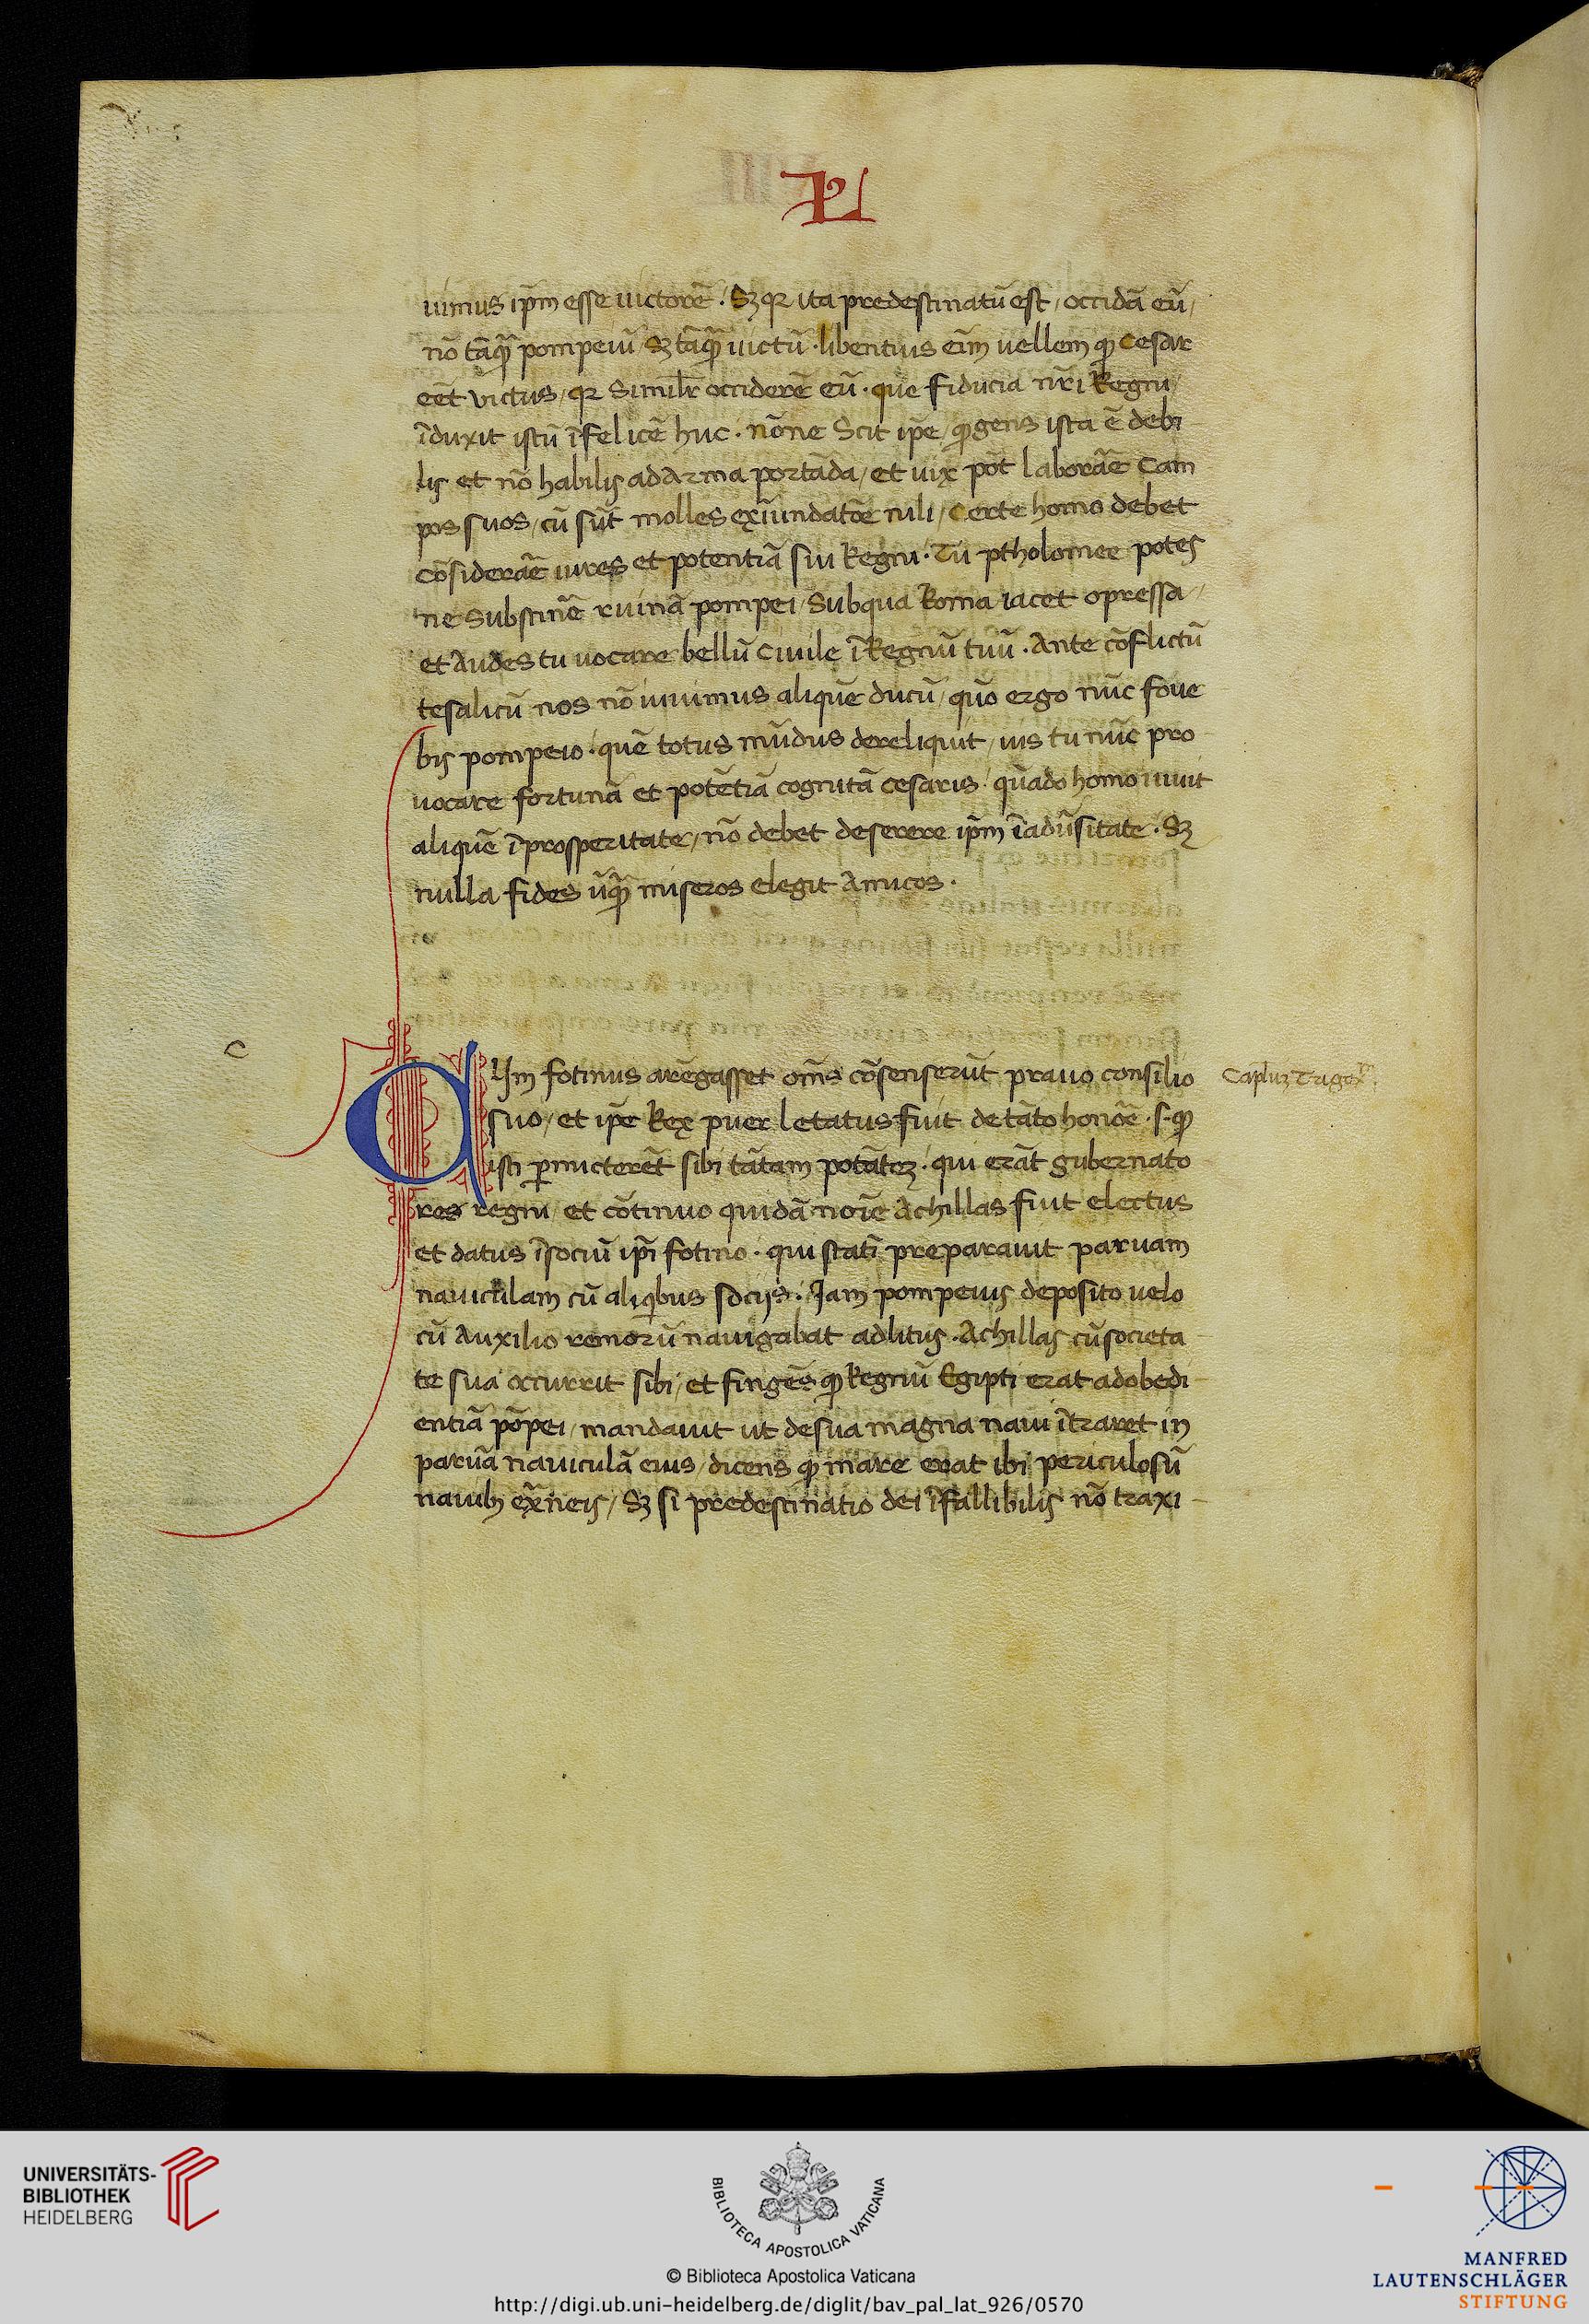 L
uimus ip̄m esse uictorē. Sꝫ qꝛ ita predestinatū est / occidā eū /
nō tāqꝫ pompeiū / sꝫ tāqꝫ uictū. libentius eīm uellem ꝙ Cesar
eēt victus / qꝛ similr̄ occiderē eū. que fiducia nr̄i Regni /
īduxit istū īfelicē huc. nōne Scit ip̄e / ꝙ gens ista ē debi
lis et nō habilis ad Arma portāda / et uix pōt laborār̄e Cam
pos suos / cū sūt molles ex iundatōe nili / Certe homo debet
cōsiderār̄e uires et potentiā sui Regni. Tu ptholomee potes
ne Substinēr̄e ruinā pompei / Sub qua Roma iacet opressa /
et Audes tu uocare bellū Ciuile ī Regnū tuū. Ante cōflictū
tesalicū nos nō iuuimus aliquē ducū / quō ergo nūc foue
bis pompeio. quē totus mūdus dereliquit / uis tu nūc pro
uocare fortunā et potētiā cognitā cesaris. quādo homo iuuit
aliquē ī prosperitate / nō debet deserere ip̄m ī adūsitate. Sꝫ
nulla fides ūqꝫ miseros elegit Amicos.
c
CUm fotinus arēgasset om̄s cōsenserūt prauo consilio
Capluꝫ Trigexᵐ.
suo / et ip̄e Rex puer letatus fuit de tāto honōe. s. ꝙ
isti ꝑmicterēt sibi tātam potātēꝫ. qui erāt gubernato
res regni / et cōtinuo quidā noīe Achillas fuit electus
et datus ī sociū ip̄i fotino. qui statī preparauit paruam
nauiculam cū aliqibus sociis. Iam pompeius deposito uelo
cū Auxilio remorū nauigabat ad litus. Achillas cū societa
te sua occurrit sibi / et fingēs ꝙ Regnū Egipti erat ad obedi
entiā pōpei / mandauit ut de sua magna naui ītraret in
paruā nauiculā eius / dicens ꝙ mare erat ibi periculosū
nauibꝫ ex̄neis / Sꝫ si predestinatio dei īfallibilis nō traxi
UNIVERSITÄTS-
BIBLIOTHEK
HEIDELBERG
BIBLIOTECA APOSTOLICA VATICANA
© Biblioteca Apostolica Vaticana
http://digi.ub.uni-heidelberg.de/diglit/bav_pal_lat_926/0570
MANFRED
LAUTENSCHLÄGER
STIFTUNG